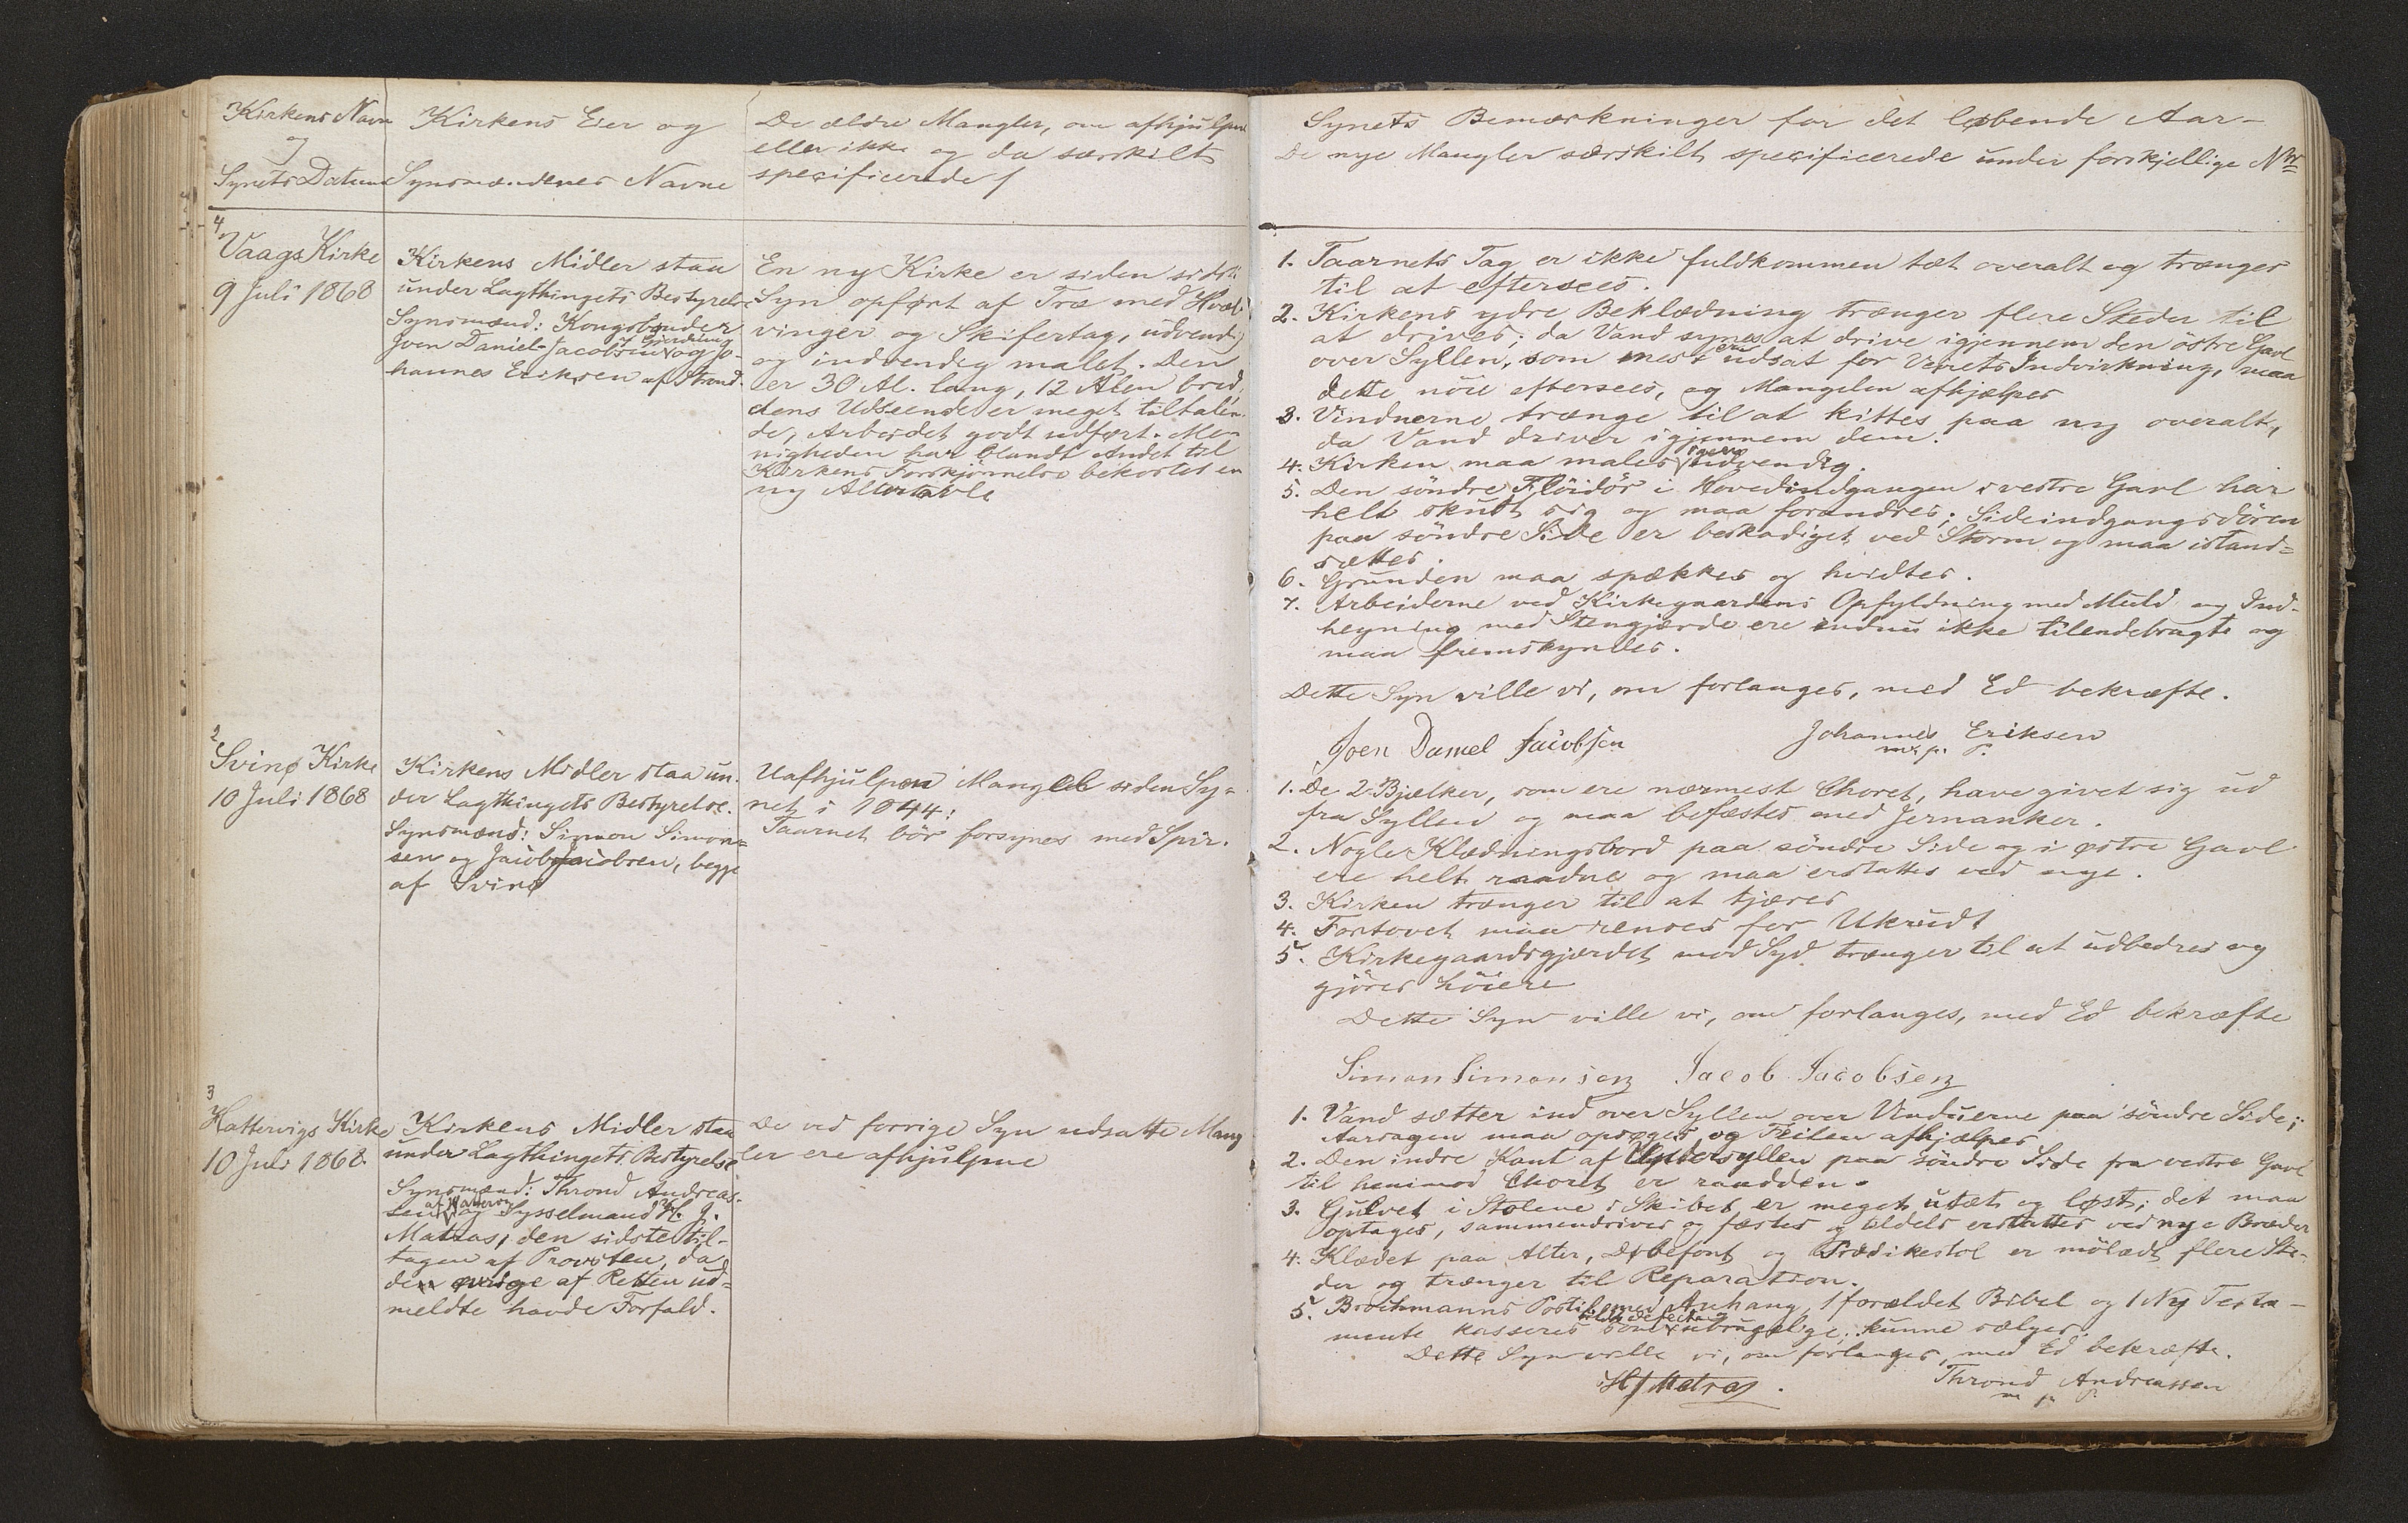 Kirkens Navn
og
Synets Datum
Kirkens Eier og
Synsmændenes Navne
De ældre Mangler, om afhjulpne
eller ikke og da særskilt
specificerede
Synets Bemærkninger for det løbende Aar-
De nye Mangler særskilt specificerede under forskjellige Nr
4
Vaags Kirke
9 Juli 1868
Kirkens Midler staa
under Lagthingets Bestyrelse
Synsmænd: Kongsbønder
Joen Daniel Jacobsen og Jo-
hannes Eriksen af Strond.
En ny Kirke er siden sidste
Syn opført af Træ med Hvæl-
vinger og Skifertag, udvendig
og indvendig malet. Den
er 30 Al. lang, 12 Alen bred,
dens Udseende er meget tiltalen-
de, Arbeidet godt udført. Me-
nigheden har blandt Andet til
Kirkens Forskjønnelse bekostet en
ny Altertavle
1. Taarnets Tag er ikke fuldkommen tæt overalt og trænges
til at eftersees.
2. Kirkens ydre Beklædning trænger flere Steder til
at drives; da Vand synes at drive igjennem den östre Gavl
over Syllen, som mest er udsat for Veirets Indvirkning, maa
dette nöie eftersees, og Mangelen afhjælpes
3. Vinduerne trænge til at kittes paa ny overalt,
da Vand driver igjennem dem.
4. Kirken maa males igjen udvendig.
5. Den söndre Flöidör i Hovedindgangen i vestre Gavl har
helt skudt sig og maa forandres; Sideindgangsdören
paa söndre Side er beskadiget ved Storm og maa istand=
sættes.
6. Grunden maa spækkes og hvidtes.
7. Arbeiderne ved Kirkegaardens Opfyldning med Muld og Ind-
hegning med Stengjærde ere endnu ikke tilendebragte og
maa fremskyndes.
Dette Syn ville vi, om forlanges, med Ed bekræfte.
Joen Daniel Jacobsen
Johannes Eriksen
m. p. P.
2
Svinø Kirke
10 Juli 1868
Kirkens Midler staa un-
der Lagthingets Bestyrelse.
Synsmænd: Simon Simon=
sen og Jacob Jacobsen, begge
af Svinø
Uafhjulpen Mangel siden Sy-
net i 1844:
Taarnet bör forsynes med Spir.
1. De 2 Bjælker, som ere nærmest Choret, have givet sig ud
fra Syllen og maa befæstes med Jernanker.
2. Nogle Klædningsbord paa söndre Side og i østre Gavl
ere helt raadne og maa erstattes ved nye.
3. Kirken trænger til at tjæres
4. Fortovet maa renses for Ukrudt
5. Kirkegaardsgjærdet mod Syd trænger til at udbedres og
gjöres höiere
Dette Syn ville vi, om forlanges, med Ed bekræfte
Simon Simonsen Jacob Jacobsen
3
Hattervigs Kirke
10 Juli 1868
Kirkens Midler staa
under Lagthingets Bestyrelse
Synsmænd: Thrond Andreas-
sen af Hattervig og Sysselmand H. J.
Matras, den sidste til-
tagen af Provsten, da
den øvrige af Retten ud-
meldte havde Forfald.
De ved forrige Syn udsatte Mang
ler ere afhjulpne
1. Vand sætter ind over Syllen over Vinduerne paa söndre Side;
Aarsagen maa opsøges og Feilen afhjælpes
2. Den indre Kant af Undersyllen paa söndre Side fra vestre Gavl
til henimod Choret er raadden.
3. Gulvet i Stolene i Skibet er meget utæt og løst; det maa
optages, sammendrives og fæstes og tildels erstattes ved nye Bræder
4. Klædet paa Alter, Døbefont og Prædikestol er mölædt flere Ste-
der og trænger til Reparation.
5. Brochmanns Postil med Anhang, 1 forældet Bibel og 1 Ny Testa-
mente kasseres som ubrugelige; kunne sælges.
Dette Syn ville vi, om forlanges, med Ed bekræfte.
HJ Matras.
Thrond Andreassen
m p P.